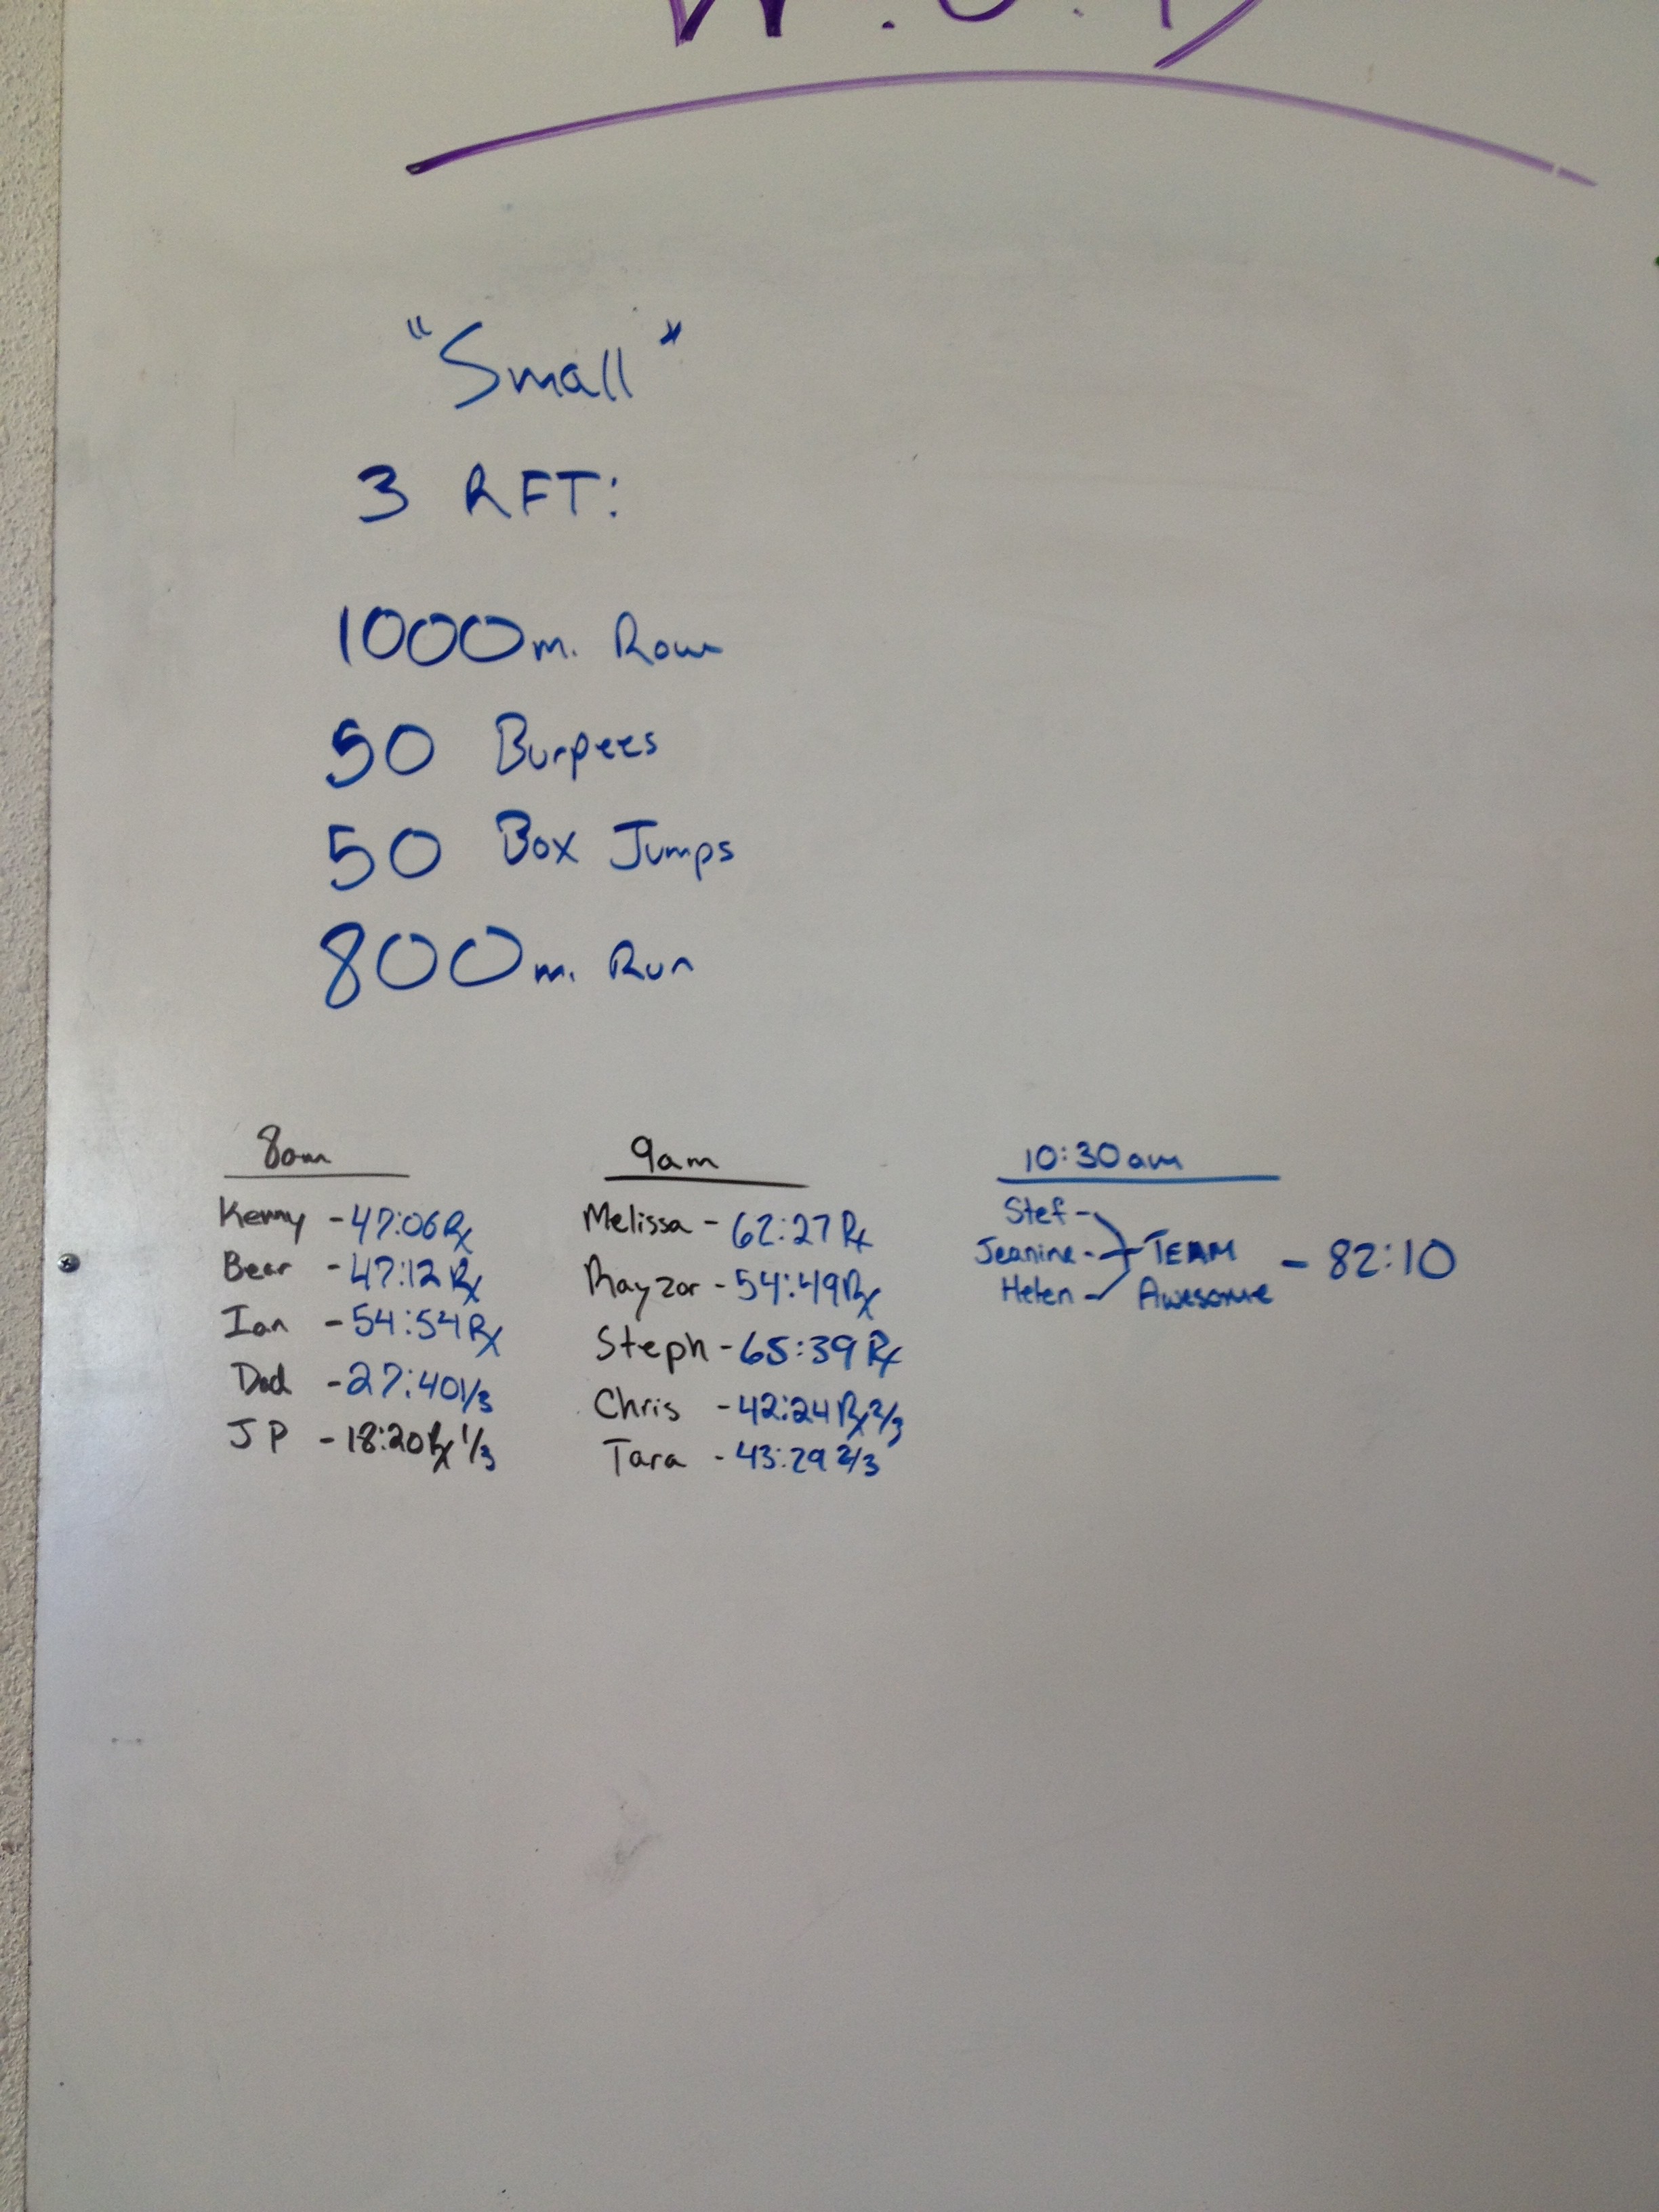 W.O.D
"Small"
3 RFT:
1000m. Row
50 Burpees
50 Box Jumps
800m. Run
8am
Kenny - 47:06 Rx
Bear - 47:12 Rx
Ian - 54:54 Rx
Dad - 27:40 1/3
JP - 18:20 Rx 1/3
9am
Melissa - 62:27 Rx
Rayzor - 54:49 Rx
Steph - 65:39 Rx
Chris - 42:24 Rx 2/3
Tara - 43:29 2/3
10:30am
Stef -
Jeanine - TEAM - 82:10
Helen - Awesome